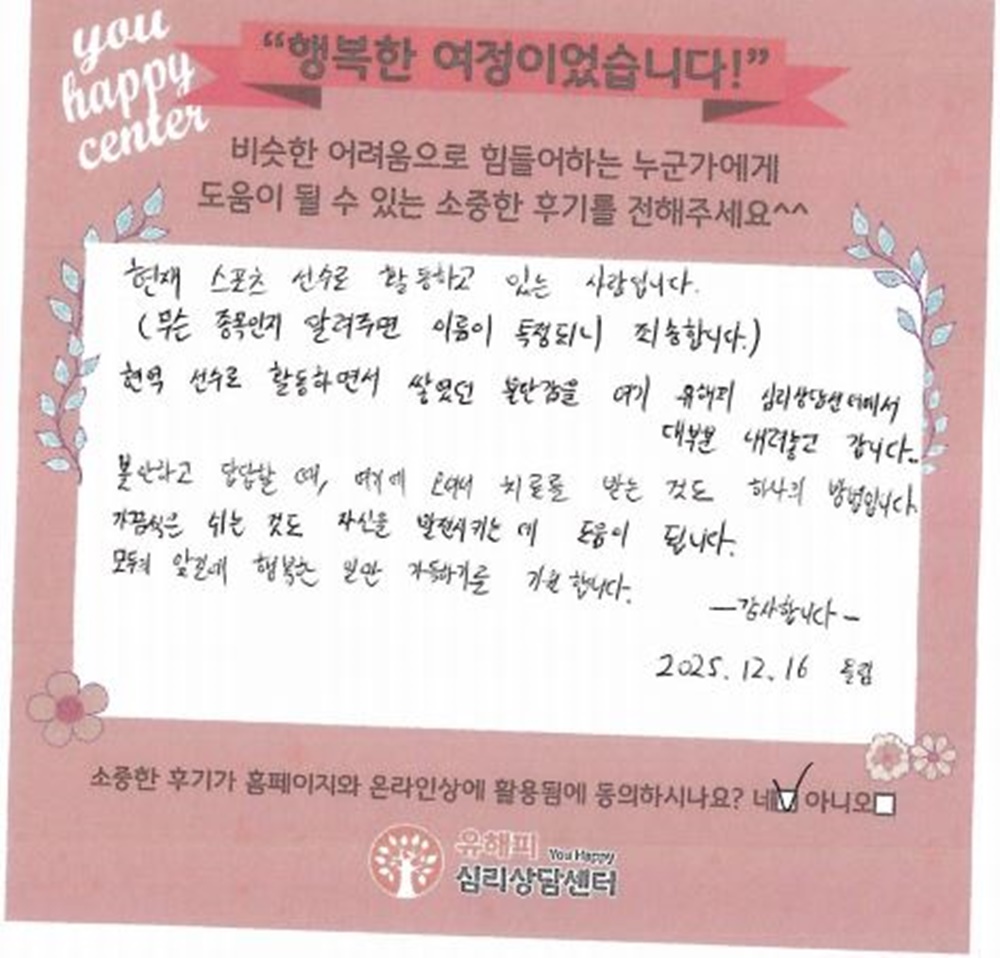 you
happy
center
“행복한 여정이었습니다!”
비슷한 어려움으로 힘들어하는 누군가에게
도움이 될 수 있는 소중한 후기를 전해주세요^^
현재 스포츠 선수로 활동하고 있는 사람입니다.
(무슨 종목인지 알려주면 이름이 특정되니 죄송합니다.)
현역 선수로 활동하면서 쌓였던 불안감을 여기 유해피 심리상담센터에서
대부분 내려놓고 갑니다..
불안하고 답답할 때, 여기에 오셔서 치료를 받는 것도 하나의 방법입니다.
가끔씩은 쉬는 것도 자신을 발전시키는 데 도움이 됩니다.
모두의 앞길에 행복한 일만 가득하기를 기원합니다.
-감사합니다-
2025.12.16 올림
소중한 후기가 홈페이지와 온라인상에 활용됨에 동의하시나요? 네 아니오
유해피 You Happy
심리상담센터